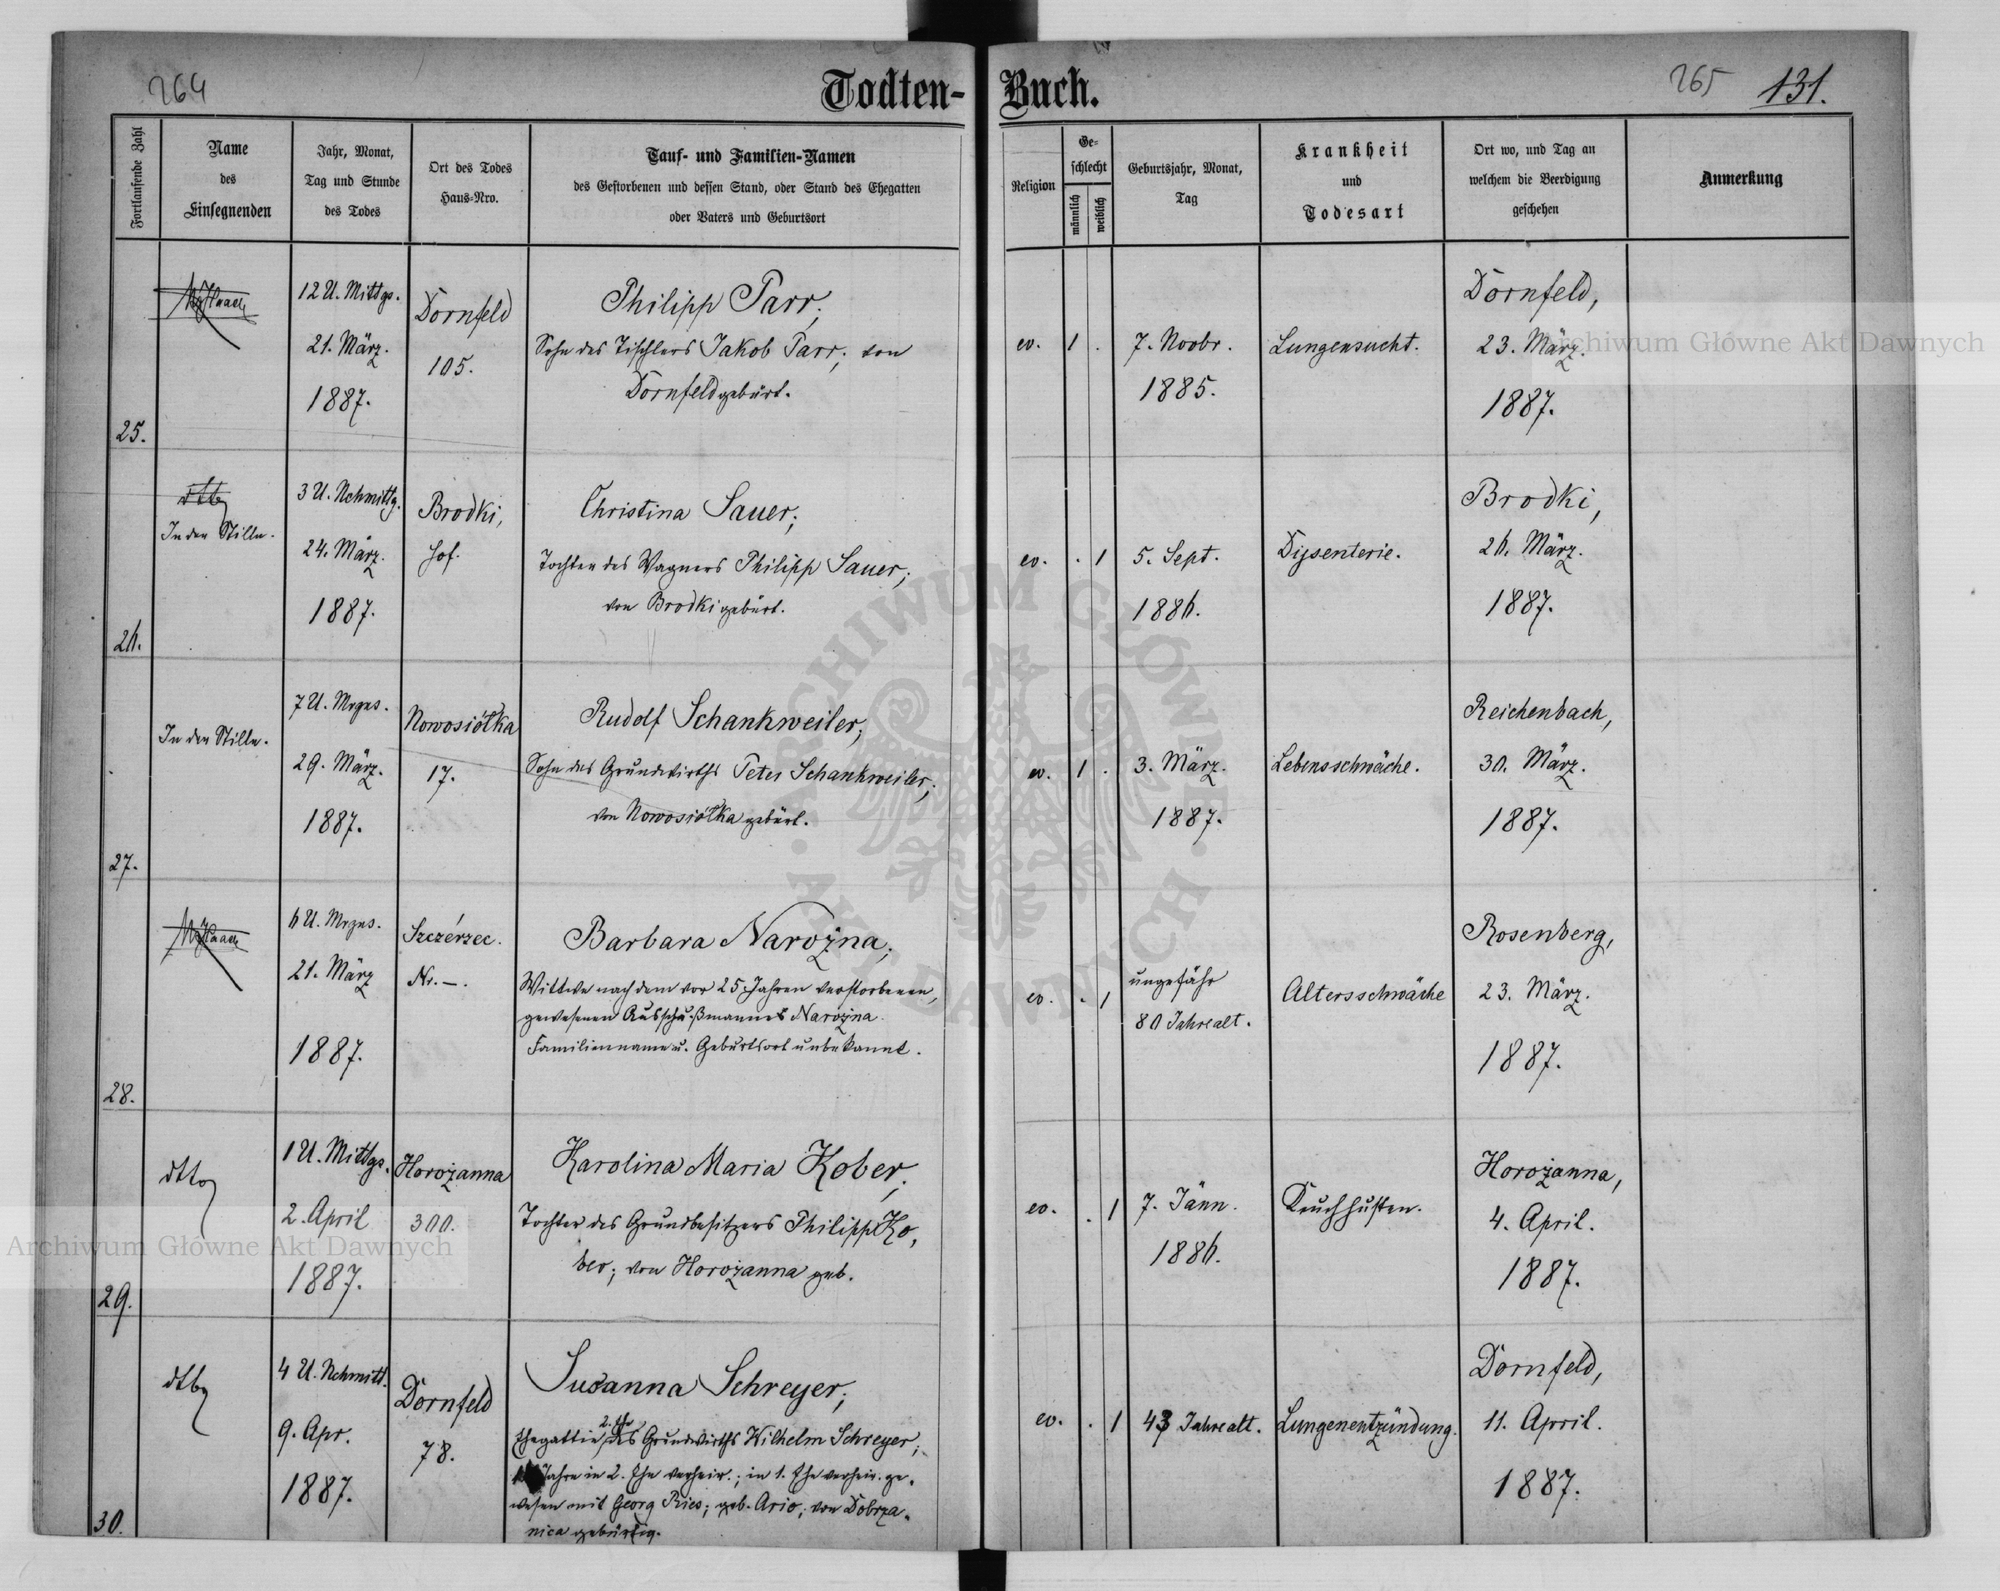 264
Todten-
Buch.
265
131.
Fortlaufende Zahl
Name
des
Einsegnenden
Jahr, Monat,
Tag und Stunde
des Todes
Ort des Todes
Haus-Nro.
Tauf- und Familien-Namen
des Gestorbenen und dessen Stand, oder Stand des Ehegatten
oder Vaters und Geburtsort
Religion
Ge-
schlecht
männlich
weiblich
Geburtsjahr, Monat,
Tag
Krankheit
und
Todesart
Ort wo, und Tag an
welchem die Beerdigung
geschehen
Anmerkung
25.
12 U. Mittgs.
21. März.
1887.
Dornfeld
105.
Philipp Parr,
Sohn des Tischlers Jakob Parr; von
Dornfeld gebürt.
ev.
1
.
7. Novbr.
1885.
Lungensucht.
Dornfeld,
23. März.
1887.
26.
dtto
In der Stille.
3 U. Nchmittg.
24. März.
1887.
Brodki,
Hof.
Christina Sauer;
Tochter des Wagners Philipp Sauer;
von Brodki gebürt.
ev.
.
1
5. Sept.
1886.
Dysenterie.
Brodki,
26. März.
1887.
27.
In der Stille.
7 U. Mrgns.
29. März.
1887.
Nowosiółka
17.
Rudolf Schankweiler;
Sohn des Grundwirths Peter Schankweiler;
von Nowosiółka gebürt.
ev.
1
.
3. März.
1887.
Lebensschwäche.
Reichenbach,
30. März.
1887.
28.
6 U. Mrgns.
21. März
1887.
Szczérzec.
Nr. —.
Barbara Narożna;
Wittwe nach dem vor 25 Jahren verstorbenen,
gewesenen Ausschußmannes Narożna.
Familienname u. Geburtsort unbekannt.
ev.
.
1
ungefähr
80 Jahre alt.
Altersschwäche
Rosenberg,
23. März.
1887.
29.
dtto
1 U. Mittgs.
2. April
1887.
Horożanna
300.
Karolina Maria Kober;
Tochter des Grundbesitzers Philipp Ko,
ber; von Horożanna geb.
ev.
.
1
7. Jänn.
1886.
Keuchhusten.
Horożanna,
4. April.
1887.
30.
dtto
4 U. Nchmitt.
9. Apr.
1887.
Dornfeld
78.
Susanna Schreyer;
2. Ehe
Ehegattin, des Grundwirths Wilhelm Schreyer;
Jahre in 2. Ehe verheir.; in 1. Ehe verheir. ge-
wesen mit Georg Ries; geb. Ario; von Dobrza-
nica gebürtig.
ev.
.
1
43 Jahre alt.
Lungenentzündung.
Dornfeld,
11. April.
1887.
Archiwum Główne Akt Dawnych
ARCHIWUM GŁÓWNE AKT DAWNYCH
Archiwum Główne Akt Dawnych